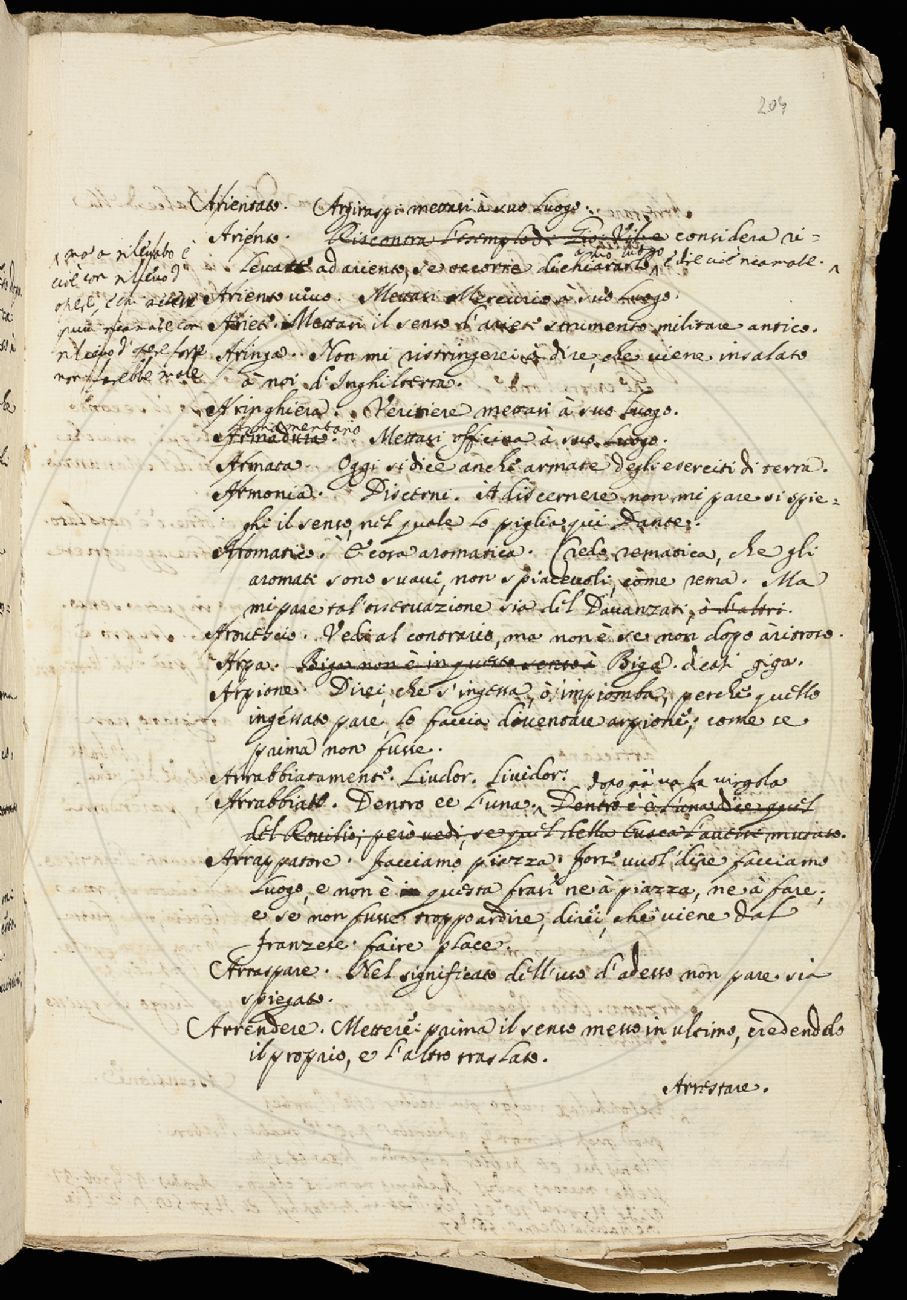 204
Arientato. Argiraspi mettasi à suo luogo.
Ariento. Riscontra l'esemplo di Tito: Vil. e considera ri=
levato ad ariento, se occorre dichiararlo
à suo luogo
cioè con rilievo d
rilievo d' ar
Ariento vivo. Mettasi Mercurio à suo luogo.
Ariete. Mettasi il senso d'ariete strumento militare antico.
Aringa. Non mi ristringerei à dire, che viene insalato
à noi d'Inghilterra.
Aringhiera. Veritiere mettasi à suo luogo.
Armamentario
Armadura. Mettasi officina à suo luogo.
Armata. Oggi si dice anche armate degli eserciti di terra.
Armonia. Discerni. A discernere non mi pare si spie=
ghi il senso, nel quale lo piglia qui Dante.
Aromatico. È cosa aromatica. Credo rematica, che gli
aromati sono suavi, non spiacevoli, come rema. Ma
mi pare tal'osservazione sia del Davanzati, ò d'altri.
Arovescio. Vedi al contrario, ma non è se non dopo àritroso.
Arpa. Biga non è in questo senso à Biga. dicasi giga.
Arpione. Direi, che s'ingessa, ò s'impiomba, perche quello
ingessato pare, lo faccia diventare arpione, come se
prima non fusse.
Arrabbiatamente. Livdor. Lividor.
dopo già va la virgola
Arrabbiato. Dentro ee l'una. Dentro è è l'una dice quel
del Rovilio, però vedi, se quel della Crusca l'avesse mutato.
Arrappatore. Facciamo piazza. Forse vuol dire facciamo
luogo, e non è in questa frase ne à piazza, ne à fare,
e se non fusse troppo ardire, direi, che viene dal
franzese faire place.
Arraspare. Nel significato dell'uso d'adesso non pare sia
spiegato.
Arrendere. Mettere prima il senso messo in ultimo, credendolo
il proprio, e l'altro traslato.
Arrestare.